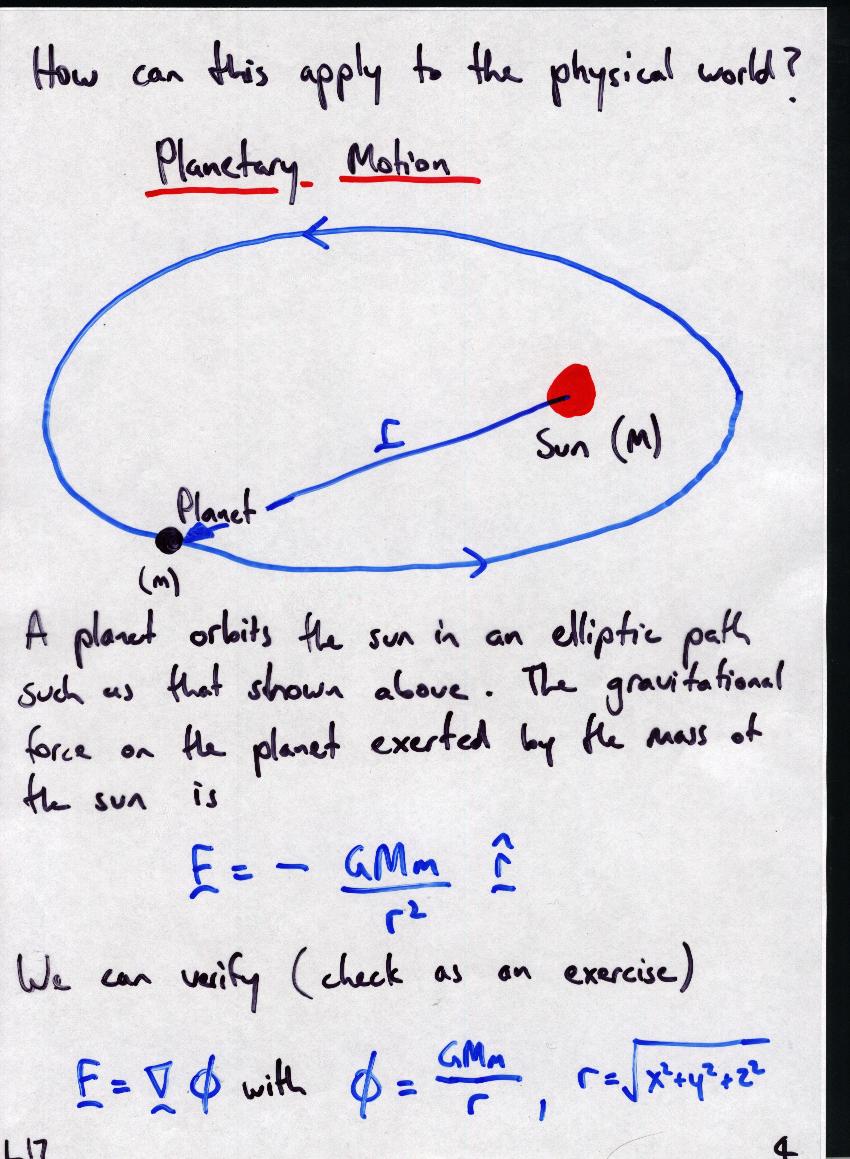 How can this apply to the physical world?
Planetary Motion
r
Sun (M)
Planet
(m)
A planet orbits the sun in an elliptic path
such as that shown above. The gravitational
force on the planet exerted by the mass of
the sun is
F = - GMm/r² r̂
We can verify (check as an exercise)
F = ∇φ with φ = GMm/r , r = √x²+y²+z²
L17
4